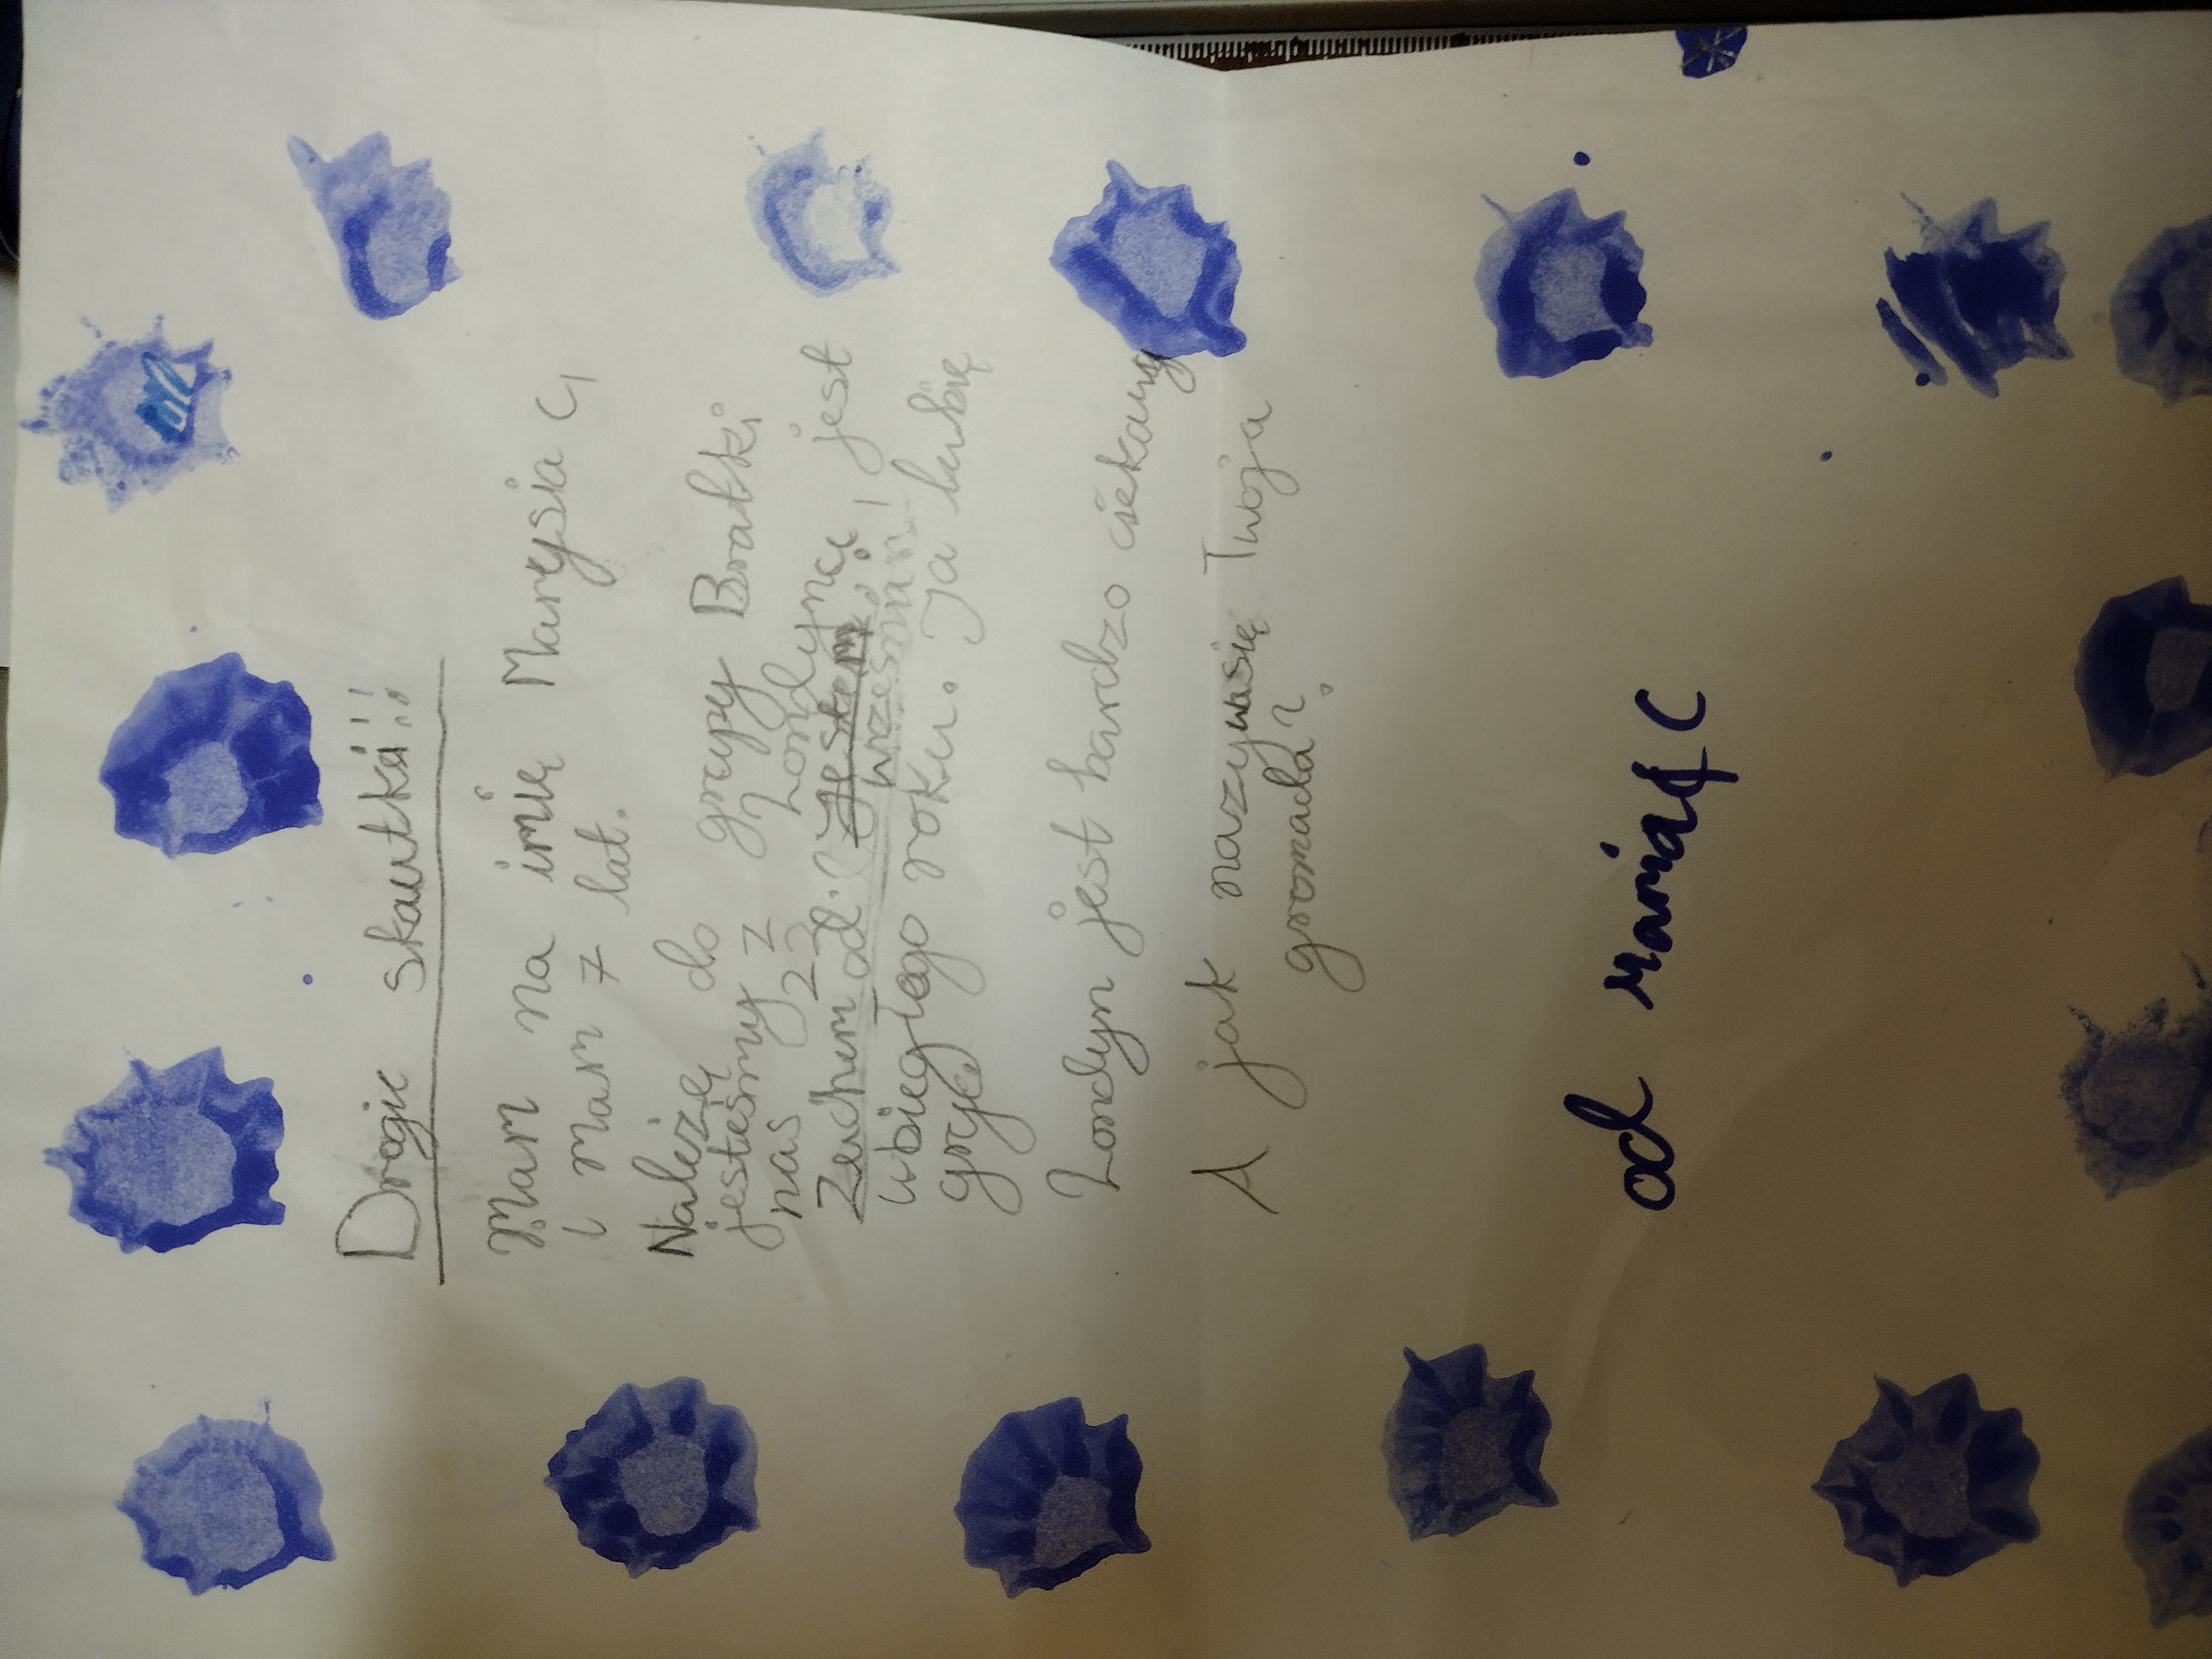 Drogie skautki!!!
Mam na imię Marysia C,
i mam 7 lat.
Należę do grupy Bratki
jesteśmy z Londynu, jest
nas 23
Zuchem od: wrzesnia
ubiegłego roku. Ja lubię
gry
Londyn jest bardzo ciekawy
A jak nazywasię Twoja
gromada?
od